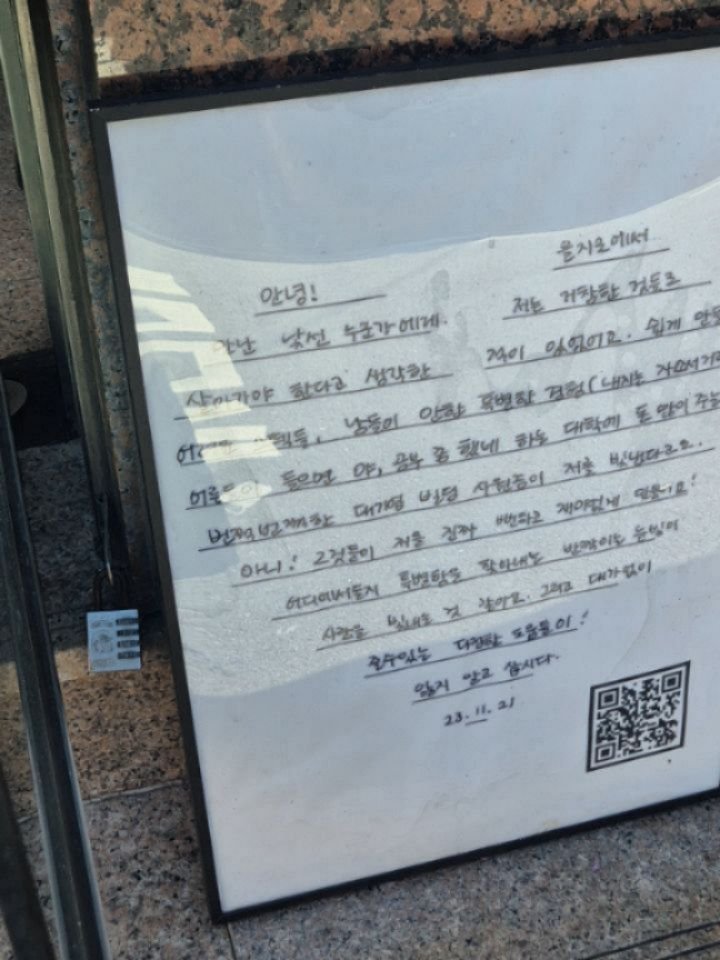 안녕! 을지로에서
만난 낯선 누군가에게. 저는 거창한 것들로
살아가야 한다고 생각한 적이 있었어요. 쉽게
남들이 안한 특별한 경험(내지는 자소서
들으면 야, 공부 좀 했네 하는 대학에
번쩍번쩍한 대기업 빌딩 사원증이 저를 빛낸다고요.
아니! 그것들이 저를 진짜 재미없게
어디에서든지 특별함을 찾아내는 반짝이는 눈빛이
사람을 빛내는 것 같아요. 그리고 대가없이
줄수있는 다정한 도움들이!
잊지 말고 삽시다.
23.11.21